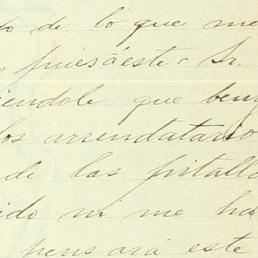 do de lo que me
puesáeste Sr.
iendole que ben
los arrendatario
de las
ido ni me ha
pensará este